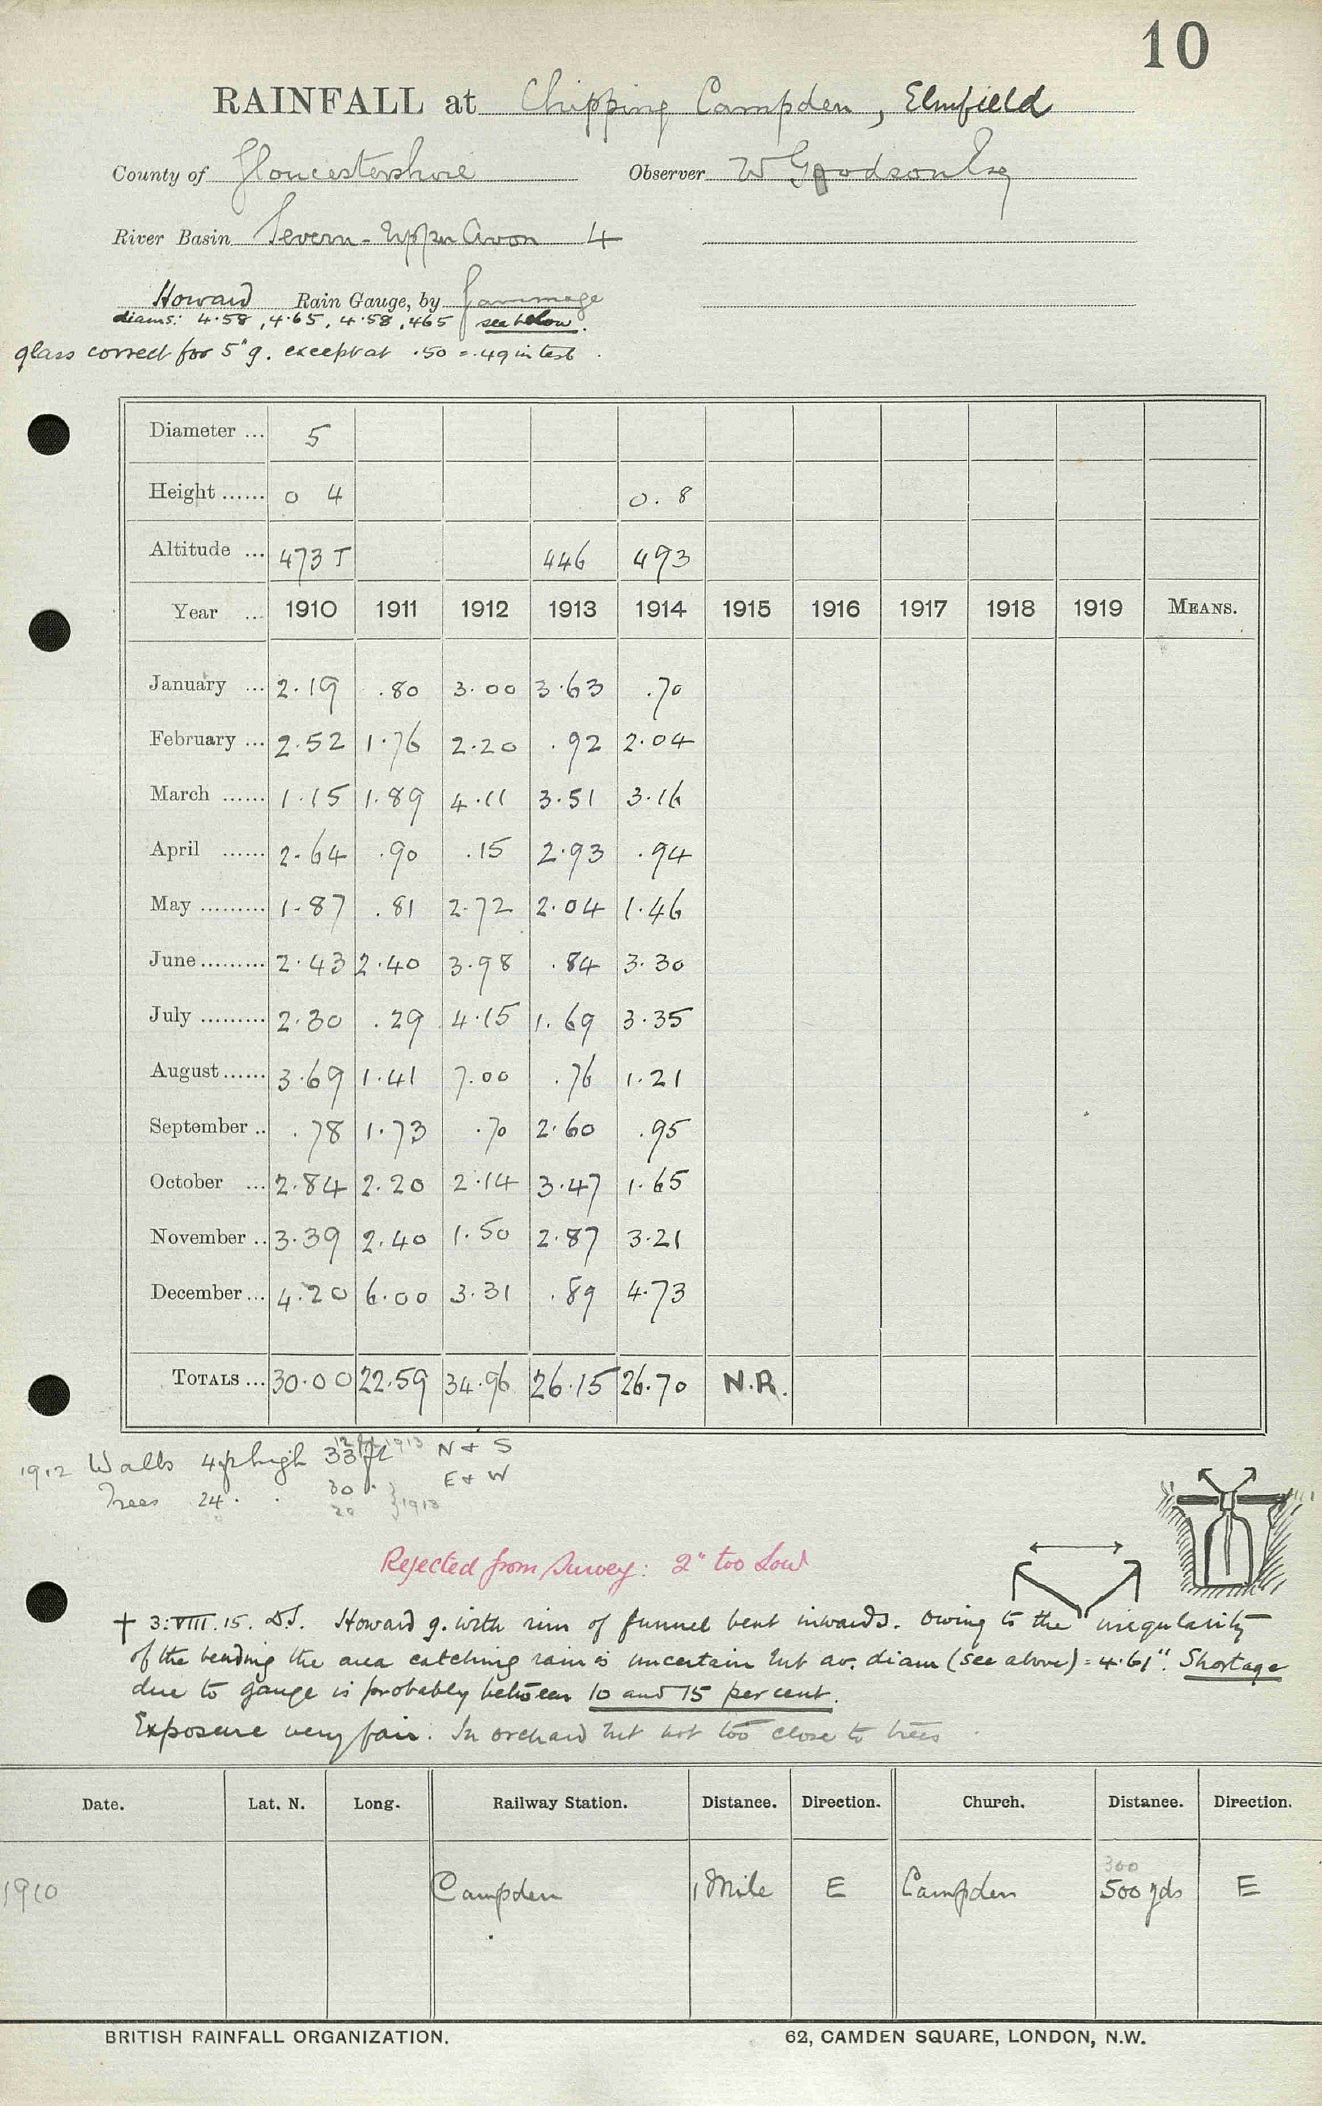 10
RAINFALL at Chipping Campden, Elmfield
County of Gloucestershire Observer W Goodson Esq
River Basin Severn - Upper Avon 4
Howard Rain Gauge, by Gammage
diams: 4.58, 4.65, 4.58, 465 see below.
glass correct for 5" g. except at .50 = .49 in test.
Diameter ... 5
Height ...... 0 4 0.8
Altitude ... 473 T 446 493
Year ... 1910 1911 1912 1913 1914 1915 1916 1917 1918 1919 MEANS.
January ... 2.19 .80 3.00 3.63 .70
February ... 2.52 1.76 2.20 .92 2.04
March ...... 1.15 1.89 4.11 3.51 3.16
April ...... 2.64 .90 .15 2.93 .94
May ......... 1.87 .81 2.72 2.04 1.46
June ......... 2.43 2.40 3.98 .84 3.30
July ......... 2.30 .29 4.15 1.69 3.35
August ...... 3.69 1.41 7.00 .76 1.21
September .. .78 1.73 .70 2.60 .95
October ... 2.84 2.20 2.14 3.47 1.65
November .. 3.39 2.40 1.50 2.87 3.21
December ... 4.20 6.00 3.31 .89 4.73
TOTALS ... 30.00 22.59 34.96 26.15 26.70 N.R.
12 ft 1913
1912 Walls 4 ft high 33 ft N + S
Trees 24 . . 30 . E + W
20 } 1913
Rejected from Survey: 2" too low
† 3.VIII.15. D.S. Howard g. with rim of funnel bent inwards. Owing to the irregularity
of the bending the area catching rain is uncertain but av. diam (see above) = 4.61". Shortage
due to gauge is probably between 10 and 15 per cent.
Exposure very fair. In orchard but not too close to trees.
Date. Lat. N. Long. Railway Station. Distance. Direction. Church. Distance. Direction.
300
1910 Campden 1 Mile E Campden 500 yds E
BRITISH RAINFALL ORGANIZATION. 62, CAMDEN SQUARE, LONDON, N.W.